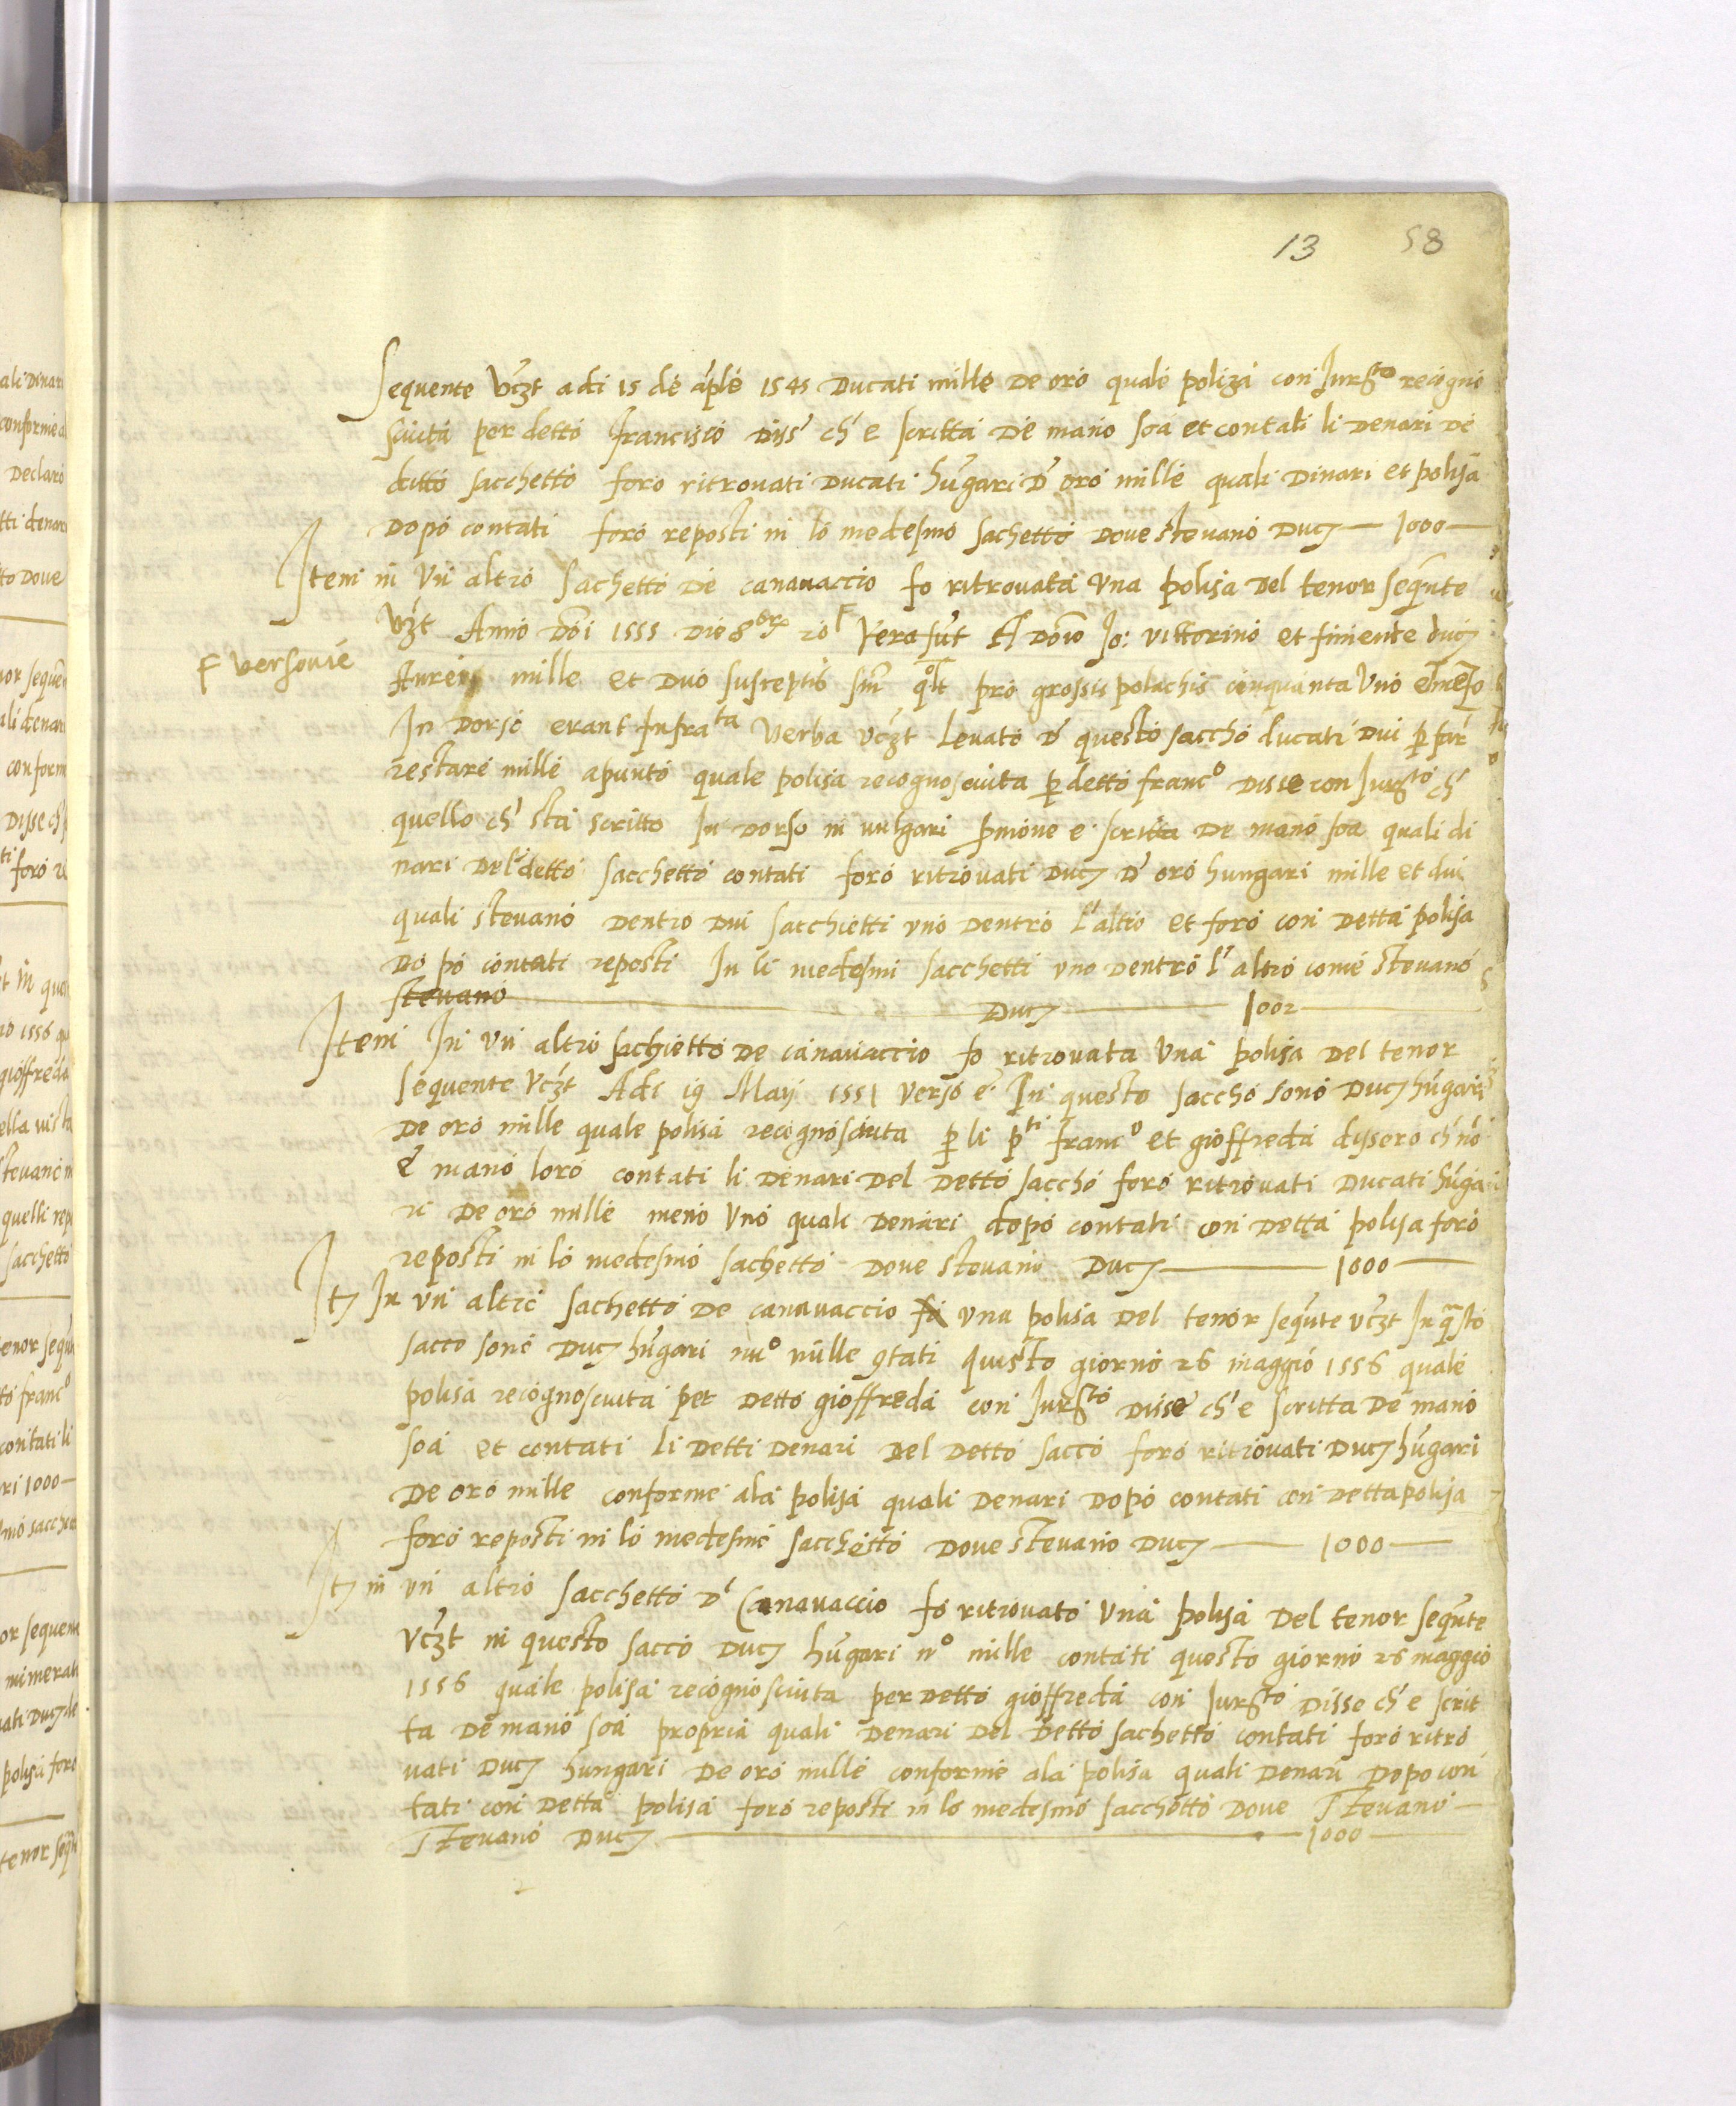 13 58
Sequente vczt adi 15 de aple 1545 Ducati mille de oro quale poliza con Jurgto recogno
sciuta per detto Francisco diss' ch' e scritta de mano soa et contati li denari de
ditto sacchetto foro ritrouati Ducati hũgari d' oro mille quali dinari et polisa
dopo contati foro reposti in lo medesmo sachetto doue steuano Duc 1000
Item in un altro sachetto de canauaccio fo ritrouata una polisa del tenor seqũte
vczt Anno dõi 1555 die 8bre 20 F vera fũt A dõio Jo: vittorino et finiente duc
F versouie
Aurei mille et duo susceptis sm pro grossis polachis cinquanta uno et mezo
In dorso erant Infrata verba vczt Leuato d' questo saccho ducati dui p far
restare mille apunto quale polisa recognosciuta p detto franco disse con Jurgto ch'
quello ch' sta scritto In dorso in uulgari smone e scritta de mano soa quali di
nari del detto sacchetto contati foro ritrouati Duc d' oro hungari mille et dui
quali steuano dentro dui sacchietti uno dentro l'altro et foro con detta polisa
do po contati reposti In li medesmi sacchetti uno dentro l' altro come steuano
steuano Duc 1002
Item In un altro sachietto de canauaccio fo ritrouata una polisa del tenor
sequente vczt Adi 19 Maij 1551 verso e In questo saccho sono Duc hũgari
de oro mille quale polisa recognosciuta p li pti franco et gioffreda dissero ch' nõ
e' mano loro contati li denari del detto saccho foro ritrouati Ducati hũga
ri de oro mille meno uno quali denari dopo contati con detta polisa foro
reposti in lo medesmo sachetto doue steuano Duc 1000
It In un altro sachetto de canauaccio fo una polisa del tenor seqũte vczt In q̃sto
sacco sono Duc hũgari nuo mille 9tati questo giorno 26 maggio 1556 quale
polisa recognosciuta per detto gioffreda con Jurgto disse ch' e scritta de mano
soa et contati li detti denari del detto sacco foro ritrouati Duc hũgari
de oro mille conforme ala polisa quali denari dopo contati con detta polisa
foro reposti in lo medesmo sacchetto doue steuano Duc 1000
It in un altro sacchetto d' Canauaccio fo ritrouato una polisa del tenor seqũte
vczt in questo sacco Duc hũgari no mille contati questo giorno 26 maggio
1556 quale polisa recognosciuta per detto gioffreda con Jurgto disse ch' e scrit
ta de mano soa propria quali denari del detto sachetto contati foro ritro
uati Duc hungari de oro mille conforme ala polisa quali denari dopo con
tati con detta polisa foro reposti in lo medesmo sacchetto doue steuano
steuano Duc 1000